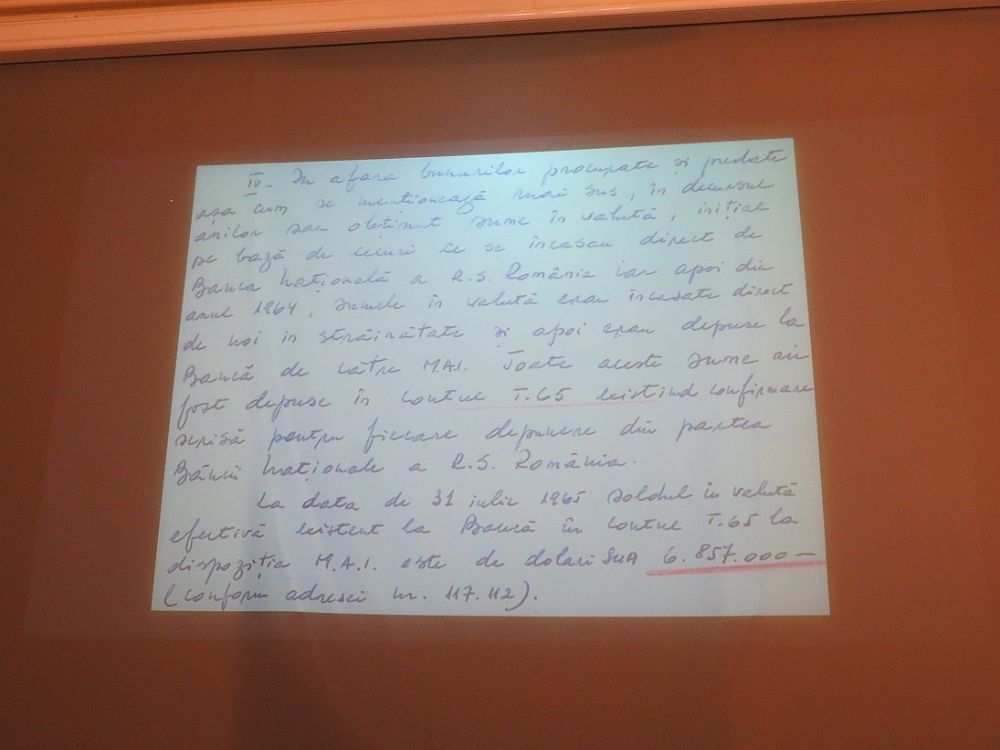 IV - În afara bunurilor procurate și predate
așa cum se menționează mai sus, în decursul
anilor sau obținut sume în valută, inițial
pe bază de cecuri ce se încasau direct de
Banca Națională a R.S. România iar apoi din
anul 1964, sumele în valută erau încasate direct
de noi in străinătate și apoi erau depuse la
Bancă de către M.A.I. Toate aceste sume au
fost depuse în contul T.65 existind confirmare
scrisă pentru fiecare depunere din partea
Băncii Naționale a R.S. România.
La data de 31 iulie 1965 soldul în valută
efectivă existent la Bancă în contul T.65 la
dispoziția M.A.I. este de dolari SUA 6.857.000 —
(conform adresei nr. 117.112).